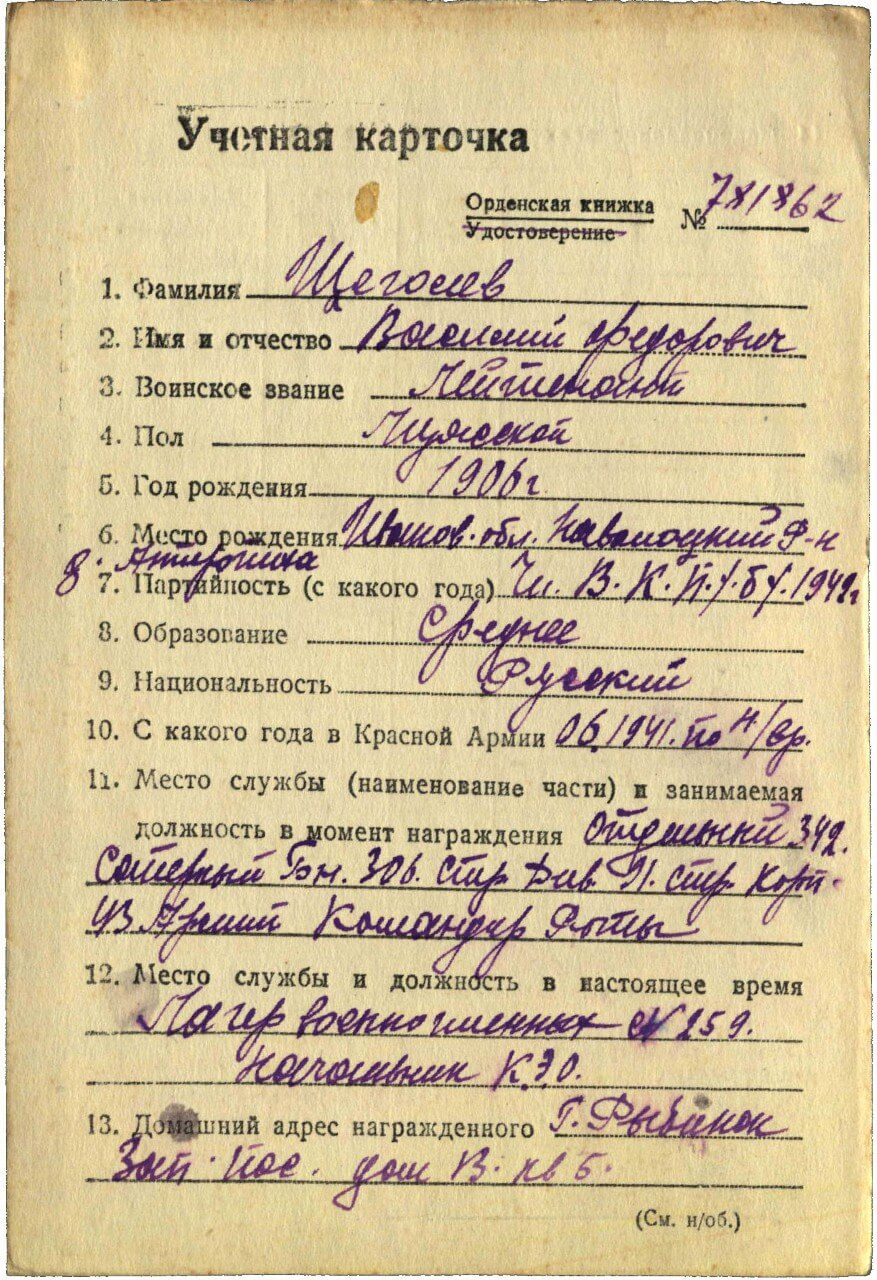 Учетная карточка
Орденская книжка № 781862
Удостоверение
1. Фамилия Щеголев
2. Имя и отчество Василий Федорович
3. Воинское звание Лейтенант
4. Пол Мужской
5. Год рождения 1906 г
6. Место рождения Иванов. обл. Наволоцкий Р-н
д. Антропиха
7. Партийность (с какого года) Чл. В. К. П. /б/. 1942 г
8. Образование Среднее
9. Национальность Русский
10. С какого года в Красной Армии 06.1941. по н/вр.
11. Место службы (наименование части) и занимаемая
должность в момент награждения Отдельный 342.
Саперный Бн. 306. Стр Див. 1. стр Корп.
43 Армии Командир Роты
12. Место службы и должность в настоящее время
Лагер военнопленных № 259.
Начальник К.Э.О.
13. Домашний адрес награжденного Г. Рыбинск
Зап. пос. дом 13. кв 5.
(См. н/об.)